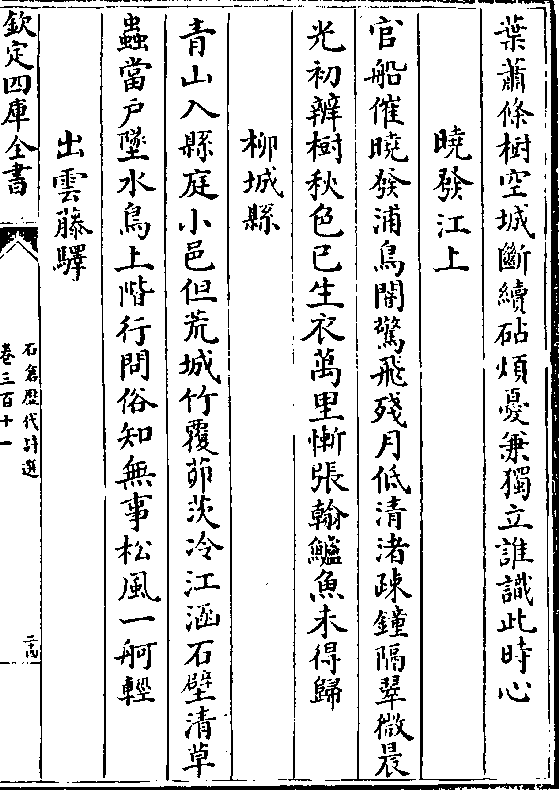 葉蕭條樹空城斷續砧煩憂兼獨立誰識此時心
曉發江上
官船催曉發浦鳥闇驚飛殘月低清渚疎鐘隔翠微晨
光初辨樹秋色已生衣萬里慚張翰鱸魚未得歸
柳城縣
青山入縣庭小邑但荒城竹覆茆茨冷江涵石壁清草
蟲當戶墜水鳥上階行問俗知無事松風一舸輕
出雲藤驛
欽定四庫全書
石倉歷代詩選
卷三百十一